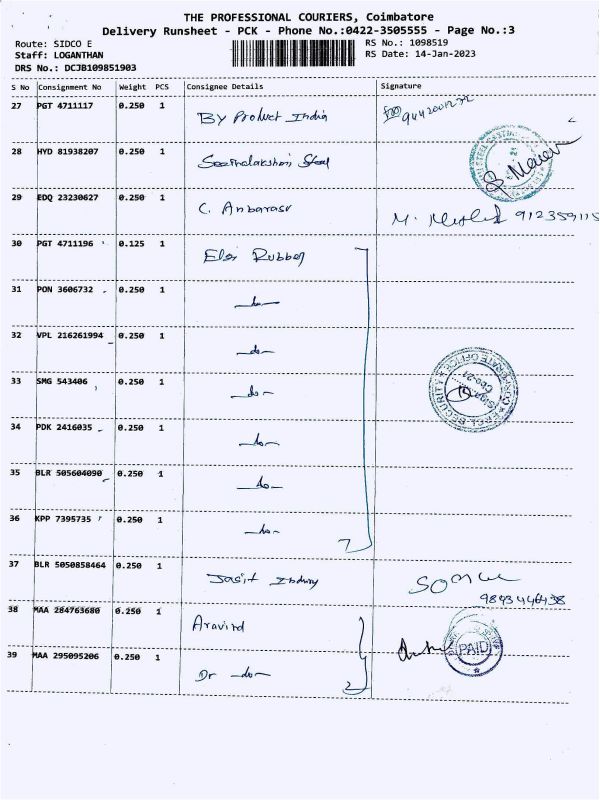 THE PROFESSIONAL COURIERS, Coimbatore
Delivery Runsheet - PCK - Phone No.:0422-3505555 - Page No.:3
Route: SIDCO E
Staff: LOGANTHAN
DRS No.: DCJB109851903
RS No.: 1098519
RS Date: 14-Jan-2023
S No Consignment No Weight PCS Consignee Details Signature
27 PGT 4711117 0.250 1 By Product India
28 HYD 81938207 0.250 1 Steel
29 EDQ 23230627 0.250 1 C. Anbarasu M. 9123591115
30 PGT 4711196 0.125 1 Elgi Rubber
31 PON 3606732 0.250 1 -do-
32 VPL 216261994 0.250 1 -do-
33 SMG 543406 0.250 1 -do-
34 PDK 2416035 0.250 1 -do-
35 BLR 505604090 0.250 1 -do-
36 KPP 7395735 0.250 1 -do-
37 BLR 5050858464 0.250 1
38 MAA 284763680 0.250 1 Aravind PAID
39 MAA 295095206 0.250 1 Dr -do-